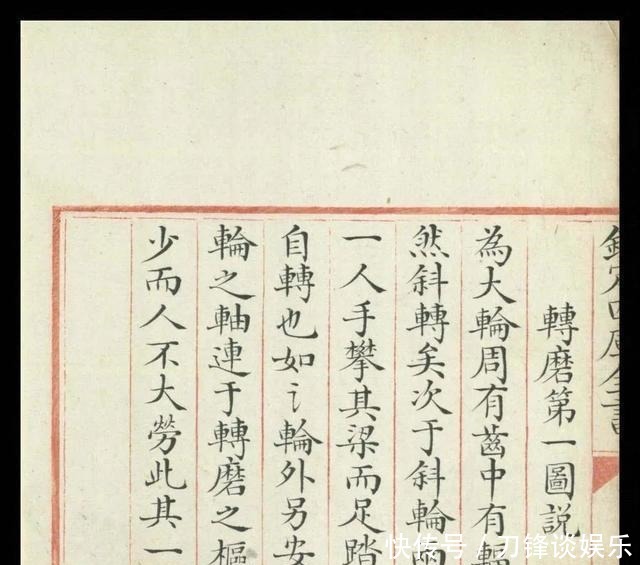 欽定四庫全書
轉磨第一圖說
為大輪周有齒中有軸
然斜轉矣次于斜輪兩
一人手攀其梁而足踏
自轉也如氵輪外另安
輪之軸連于轉磨之樞
少而人不大勞此其一
快传号/刀锋谈娱乐